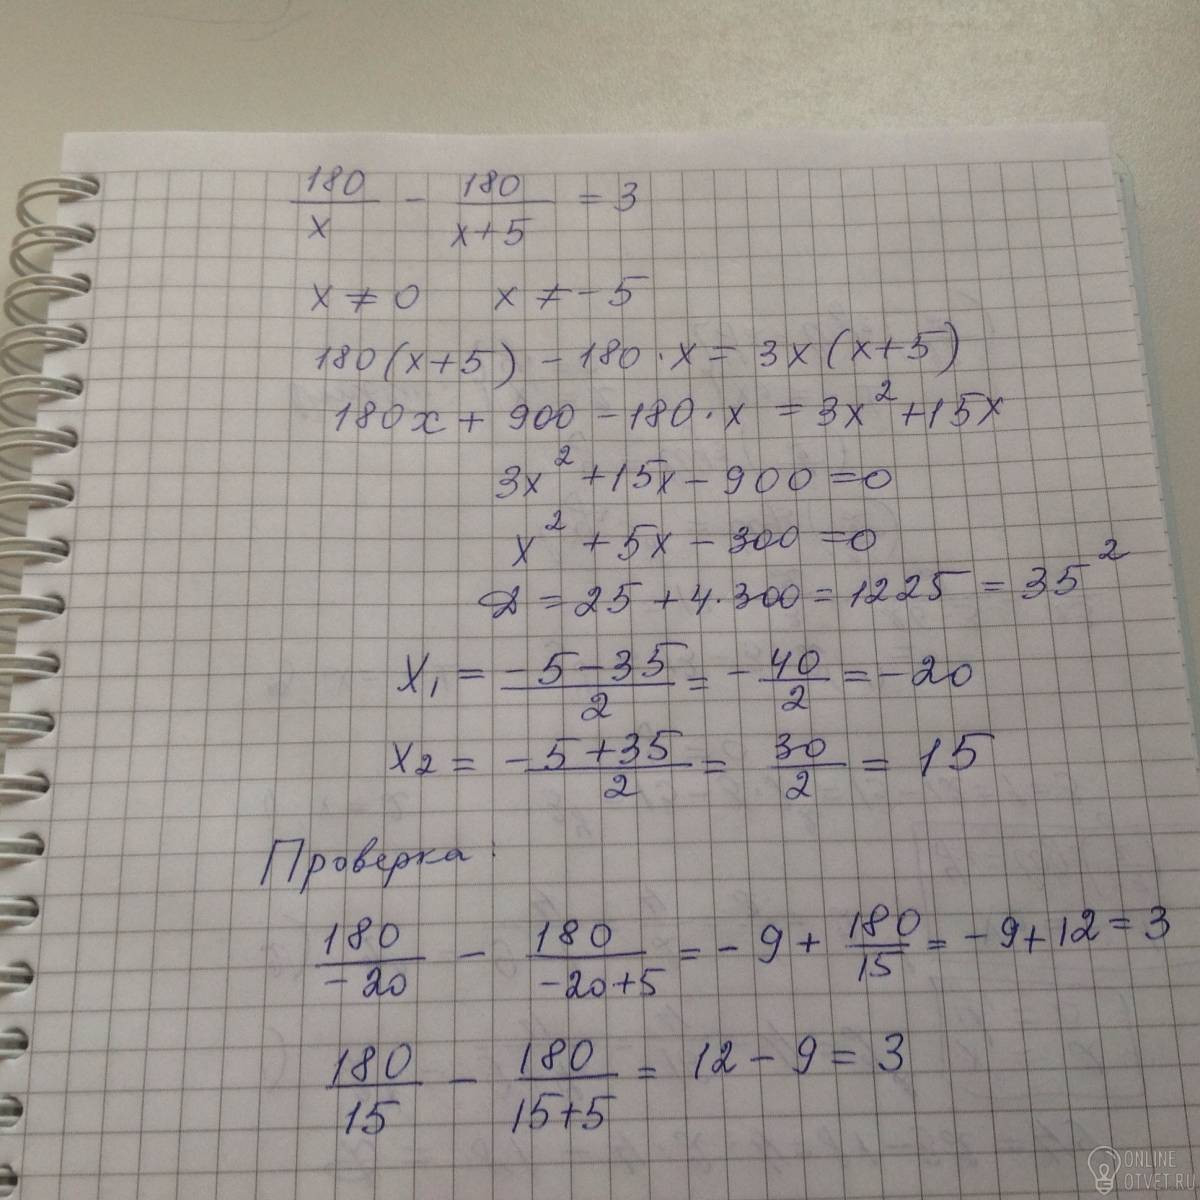 180/x - 180/(x+5) = 3
x ≠ 0 x ≠ -5
180(x+5) - 180·x = 3x(x+5)
180x + 900 - 180·x = 3x² + 15x
3x² + 15x - 900 = 0
x² + 5x - 300 = 0
D = 25 + 4·300 = 1225 = 35²
x₁ = (-5-35)/2 = -40/2 = -20
x₂ = (-5+35)/2 = 30/2 = 15
Проверка:
180/-20 - 180/(-20+5) = -9 + 180/15 = -9+12 = 3
180/15 - 180/(15+5) = 12 - 9 = 3
ONLINE
OTVET.RU